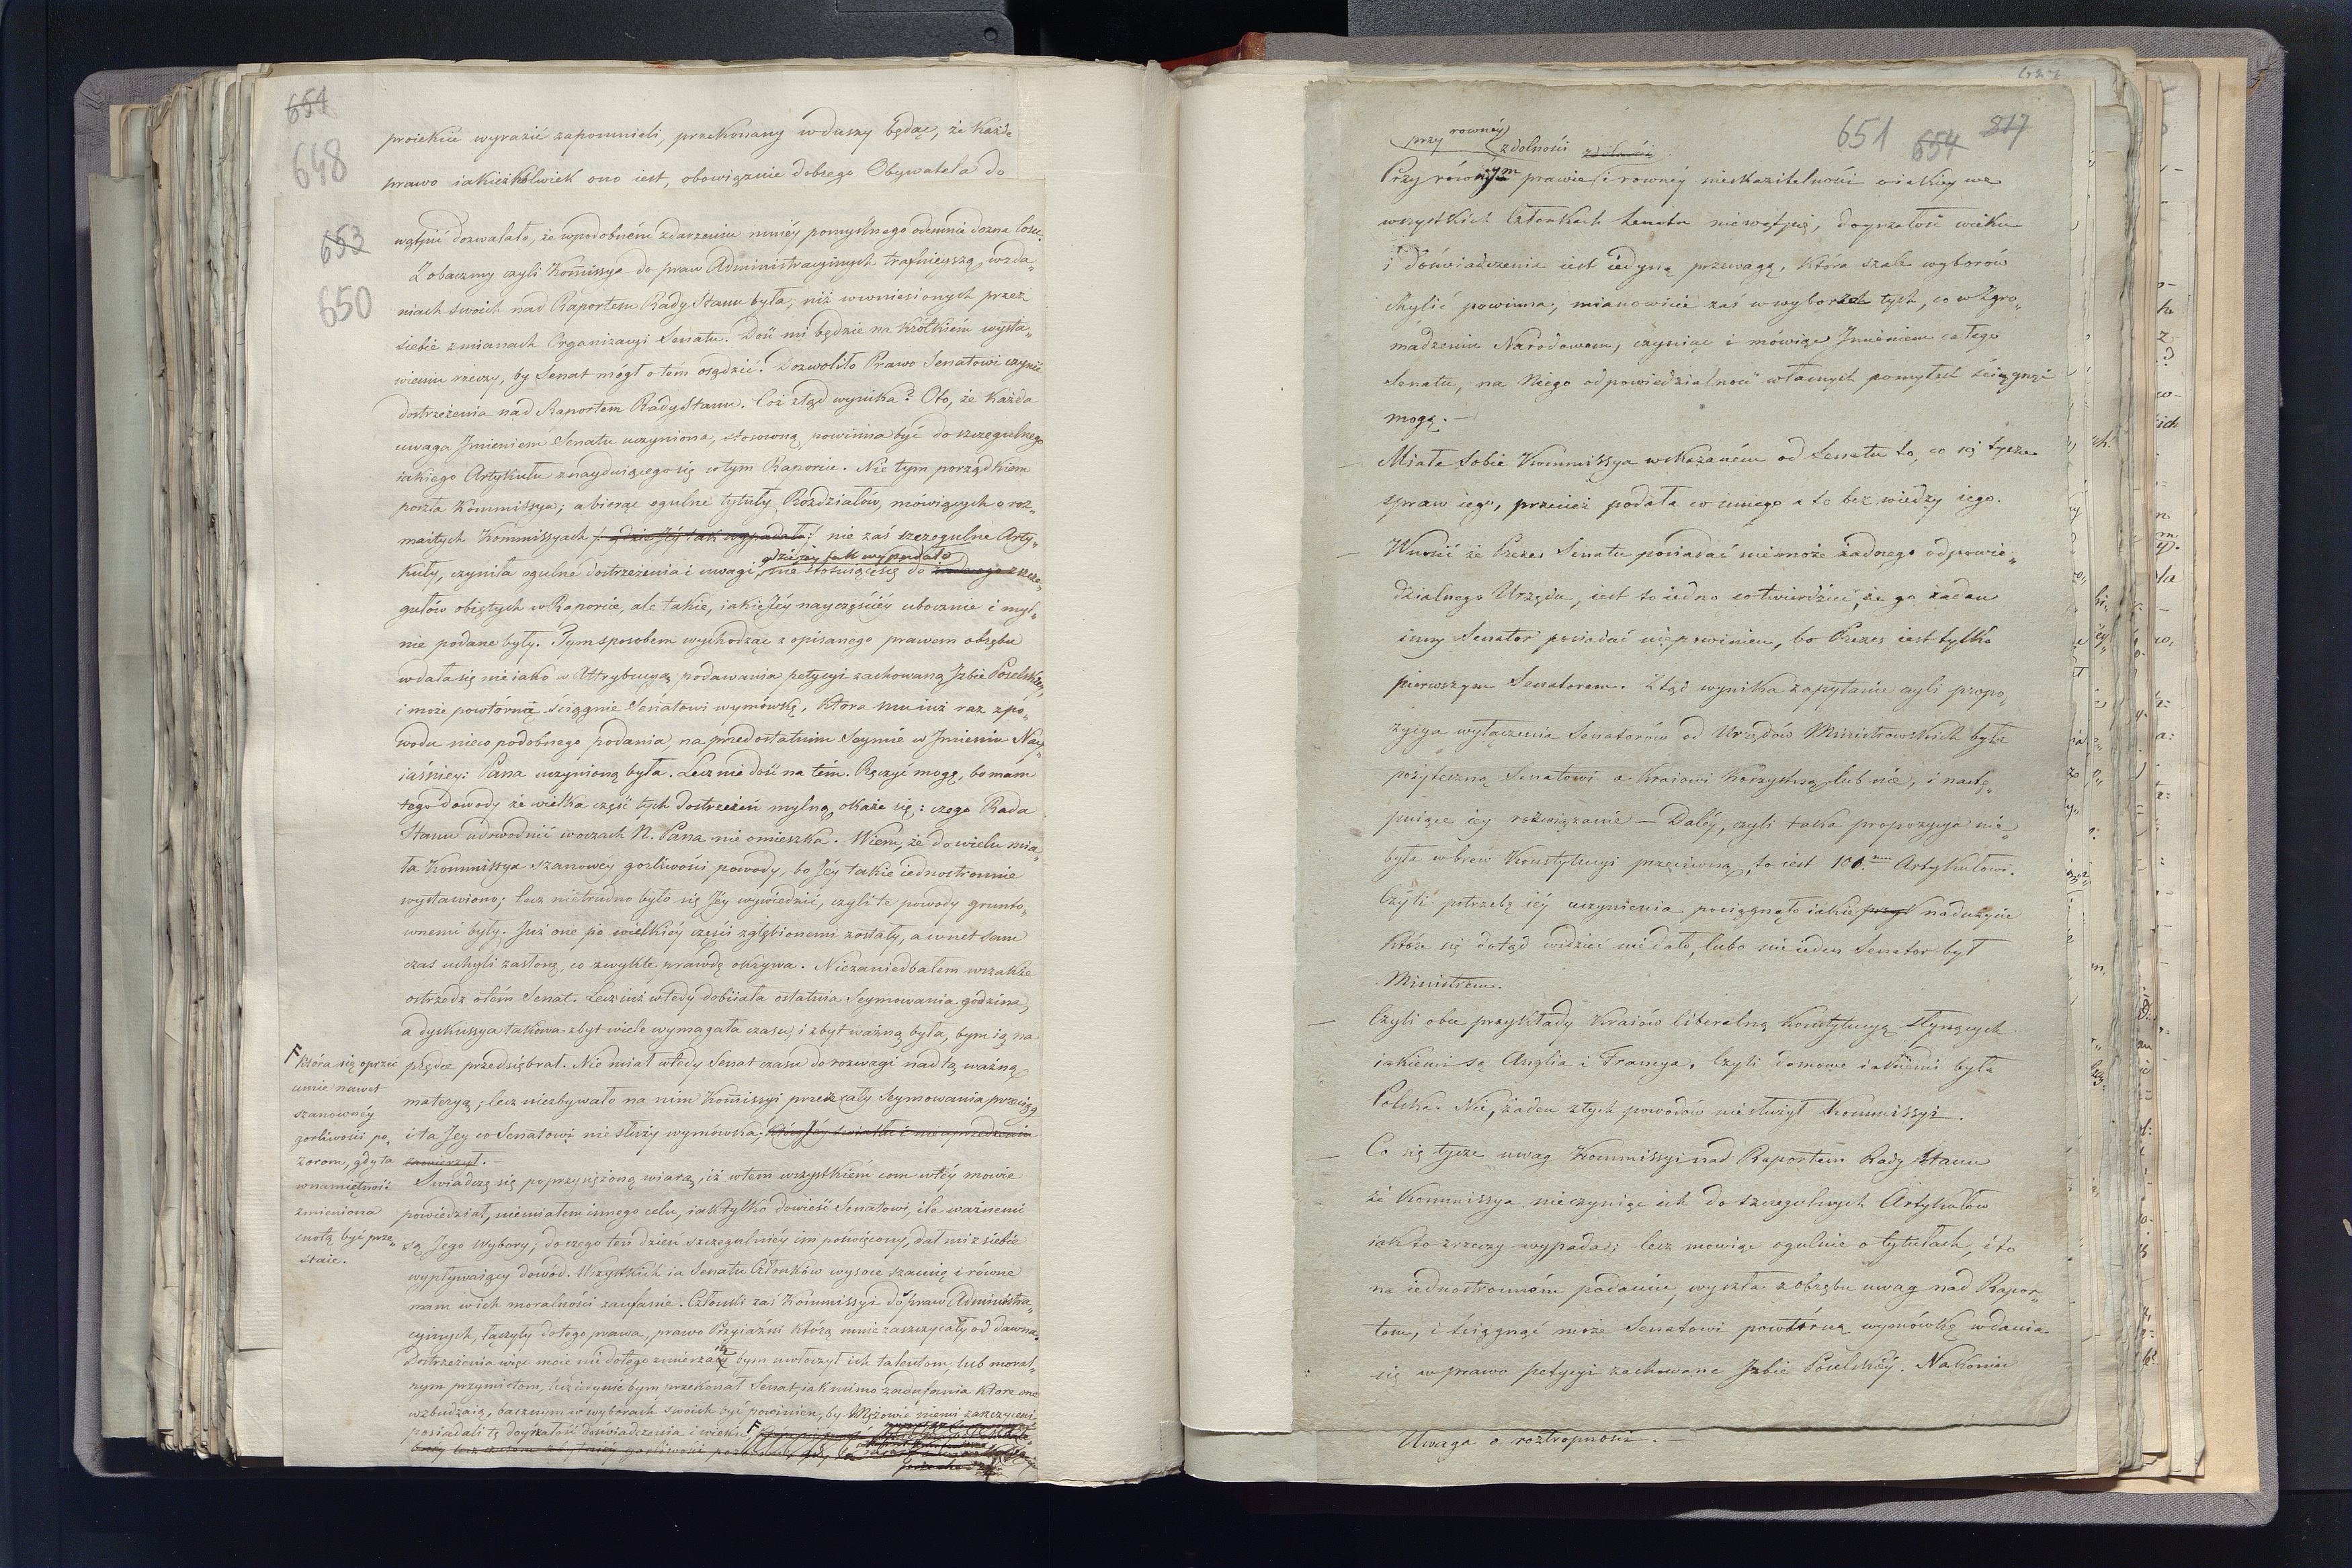 651
648
proiekcie wyrazić zapomnieli, przekonany w duszy będąc, że każde
prawo iakieżkolwiek ono iest, obowiąznie dobrego Obywatela do
653
650
wątpić dozwalało, że w podobném zdarzeniu mniéy pomyślnego odemnie dozna losu.
Zobaczmy czyli Kommissya do praw Administracyinych trafnieyszą w zda„
niach swoich nad Raportem Rady Stanu była, niż w wniesionych przez
siebie zmianach Organizacyi Senatu. Dość mi będzie na krótkiém wysta„
wieniu rzeczy, by Senat mógł o tem osądzić. Dozwoliło Prawo Senatowi czynić
dostrzeżenia nad Raportem Rady Stanu. Cóż ztąd wynika? Oto, że każda
uwaga Jmieniem Senatu uczyniona, stosowną powinna być do szczegulnego
iakiego Artykułu znayduiącego się w tym Raporcie. Nie tym porządkiem
poszła Kommissya; a biorąc ogulne tytuły Rozdziałów, mówiących o roz„
maitych Kommissyach /: gdzie Jéy tak wypadało :/ nie zaś szczegulne Arty„
gdzie jey tak wypadało
kuły, czyniła ogulne dostrzeżenia i uwagi, nie stosuiące się do żadnego szcze„
gułów obiętych w Raporcie, ale takie, iakie Jéy nayczęściéy ubocznie i myl„
nie podane były. Tym sposobem wychodząc z opisanego prawem obrębu
wdała się nieiako w Attrybucyą podawania petycyi zachowaną Jzbie Poselskiey,
i może powtórnie ściągnie Senatowi wymówkę, która mu iuż raz z po„
wodu nieco podobnego podania, na przedostatnim Seymie w Jmieniu Nay„
iaśniey: Pana uczynioną była. Lecz nie dość na tém. Ręczyć mogę, bo mam
tego dowody że wielka część tych dostrzeżeń mylną okaże się: czego Rada
Stanu udowodnić w oczach N. Pana nie omieszka. Wiem, że do wielu mia„
ła Kommissya szanowey gorliwości powody, bo Jéy takie iednostronnie
wystawiono; lecz nietrudno było się Jéy wywiedzić, czyli te powody grunto„
wnemi były. Już one po wielkiéy części zgłębionemi zostały, a wnet sam
czas uchyli zasłonę, co zwykle prawdę okrywa. Niezaniedbałem wszakże
ostrzedz o tém Senat. Lecz iuż wtedy dobiiała ostatnia Seymowania godzina,
a dyskussya takowa zbyt wiele wymagała czasu, i zbyt ważną była, bym ią na
prędce przedsiębrał. Nie miał wtedy Senat czasu do rozwagi nad tą ważną
materyą; lecz niezbywało na nim Kommissyi przez cały Seymowania przeciąg
i ta Jey co Senatowi nie służy wymówka;
zamierzył. —
F która się oprzeć
umie nawet
szanownéy
gorliwości po„
zorom, gdy ta
w namiętność
zmieniona
cnotą być prze„
staie.
Świadczę się poprzysiężoną wiarą, iż w tem wszystkiém com w téy mowie
powiedział, nie miałem innego celu, iak tylko dowieść Senatowi, ile ważnemi
są Jego Wybory; do czego ten dzień szczegulniéy im poświęcony, dał mi z siebie
wypływaiący dowód. Wszystkich ia Senatu Członków wysoce szanuię i równe
mam w ich moralności zaufanie. Członki zaś Kommissyi do praw Administra„
cyinych, łączyły do tego prawa, prawo Przyiaźni którą mnie zaszczycały od dawna.
Dostrzeżenia więc moie nie do tego zmierzaią bym uwłoczył ich talentom, lub moral„
nym przymiotom, lecz iedynie bym przekonał Senat, iak mimo zadufania które one
wzbudzaią, bacznym w wyborach swoich być powinien, by Mężowie niemi zaszczyceni
posiadali tę doyrzałość doświadczenia i wieku, F
651 654 817
przy rownéy zdolności
Przy równym prawie i rowney nieskazitelności o iakiey we
wszystkich Członkach Senatu niewątpię, doyrzałość wieku
i doświadczenie iest iedyną przewagą, która szale wyborów
chylić powinna, mianowicie zaś w wyborach tych, co w Zgro„
madzeniu Narodowem, czyniąc i mówiąc Jmieniem całego
Senatu, na Niego odpowiedzialność własnych pomyłek ściągnąć
mogą. —
— Miała sobie Kommissya wskazaném od Senatu to, co się tycze
spraw iego, przecież podała co innego a to bez wiedzy iego.
— Wnosić że Prezes Senatu posiadać nie może żadnego odpowie„
dzialnego Urzędu, iest to iedno co twierdzić, że go żaden
inny Senator posiadać nie powinien, bo Prezes iest tylko
pierwszym Senatorem. Ztąd wynika zapytanie czyli propo„
zycya wyłączenia Senatorów od Urzędów Ministrowskich była
pożyteczną Senatowi a Kraiowi korzystną lub nie, i nastę„
puiące iey rozwiązanie — Daléy, czyli taka propozycya nie
była wbrew Konstytucyi przeciwną, to iest 101.mu Artykułowi.
Czyli potrzebę iéy uczynienia pociągnęło iakie nadużycie
które się dotąd widzieć nie dało, lubo nie ieden Senator był
Ministrem.
— Czyli obce przykłady kraiów liberalną Konstytucyą słynących
iakiemi są Anglia i Francya. Czyli domowe iakiemi była
Polska. Nie, żaden z tych powodów nie służył Kommissyi.
— Co się tycze uwag Kommissyi nad Raportem Rady Stanu
że Kommissya nieczyniąc ich do szczegulnych Artykułów
iak to z rzeczy wypada; lecz mowiąc ogulnie o tytułach, i to
na iednostronném podaniu, wyszła z obrębu uwag nad Rapor„
tem, i ściągnąć może Senatowi powtórną wymówkę wdania
się w prawo petycyi zachowane Jzbie Poselskiéy. Nakoniec
Uwaga o roztropności. —